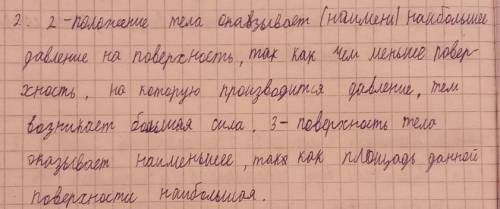 2. 2-положение тела оказывает (наимени) наибольшее
давление на поверхность, так как чем меньше повер-
хность, на которую производится давление, тем
возникает большая сила. 3-поверхность тела
оказывает наименьшее, так как площадь данной
поверхности наибольшая.